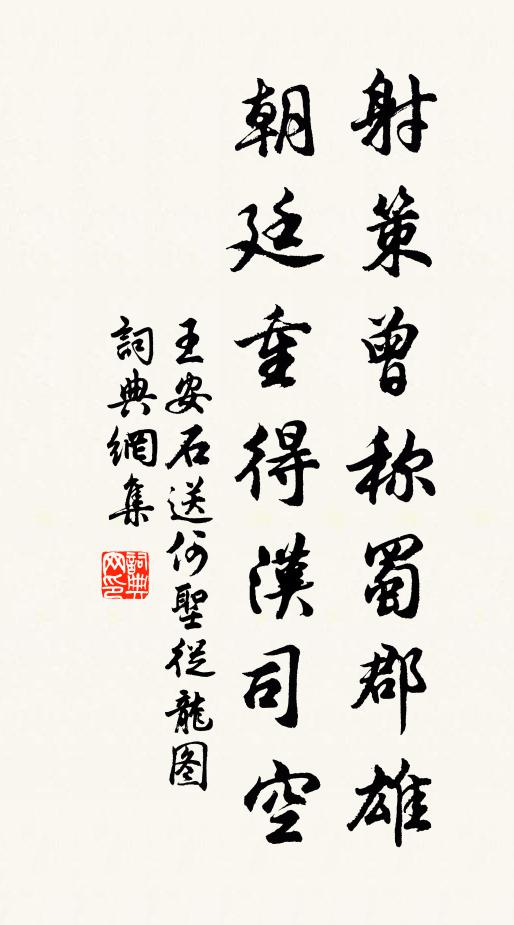 射策曾称蜀郡雄
朝廷重得漢司空
王安石送何聖従龍图
詞典網集
詞典
网印